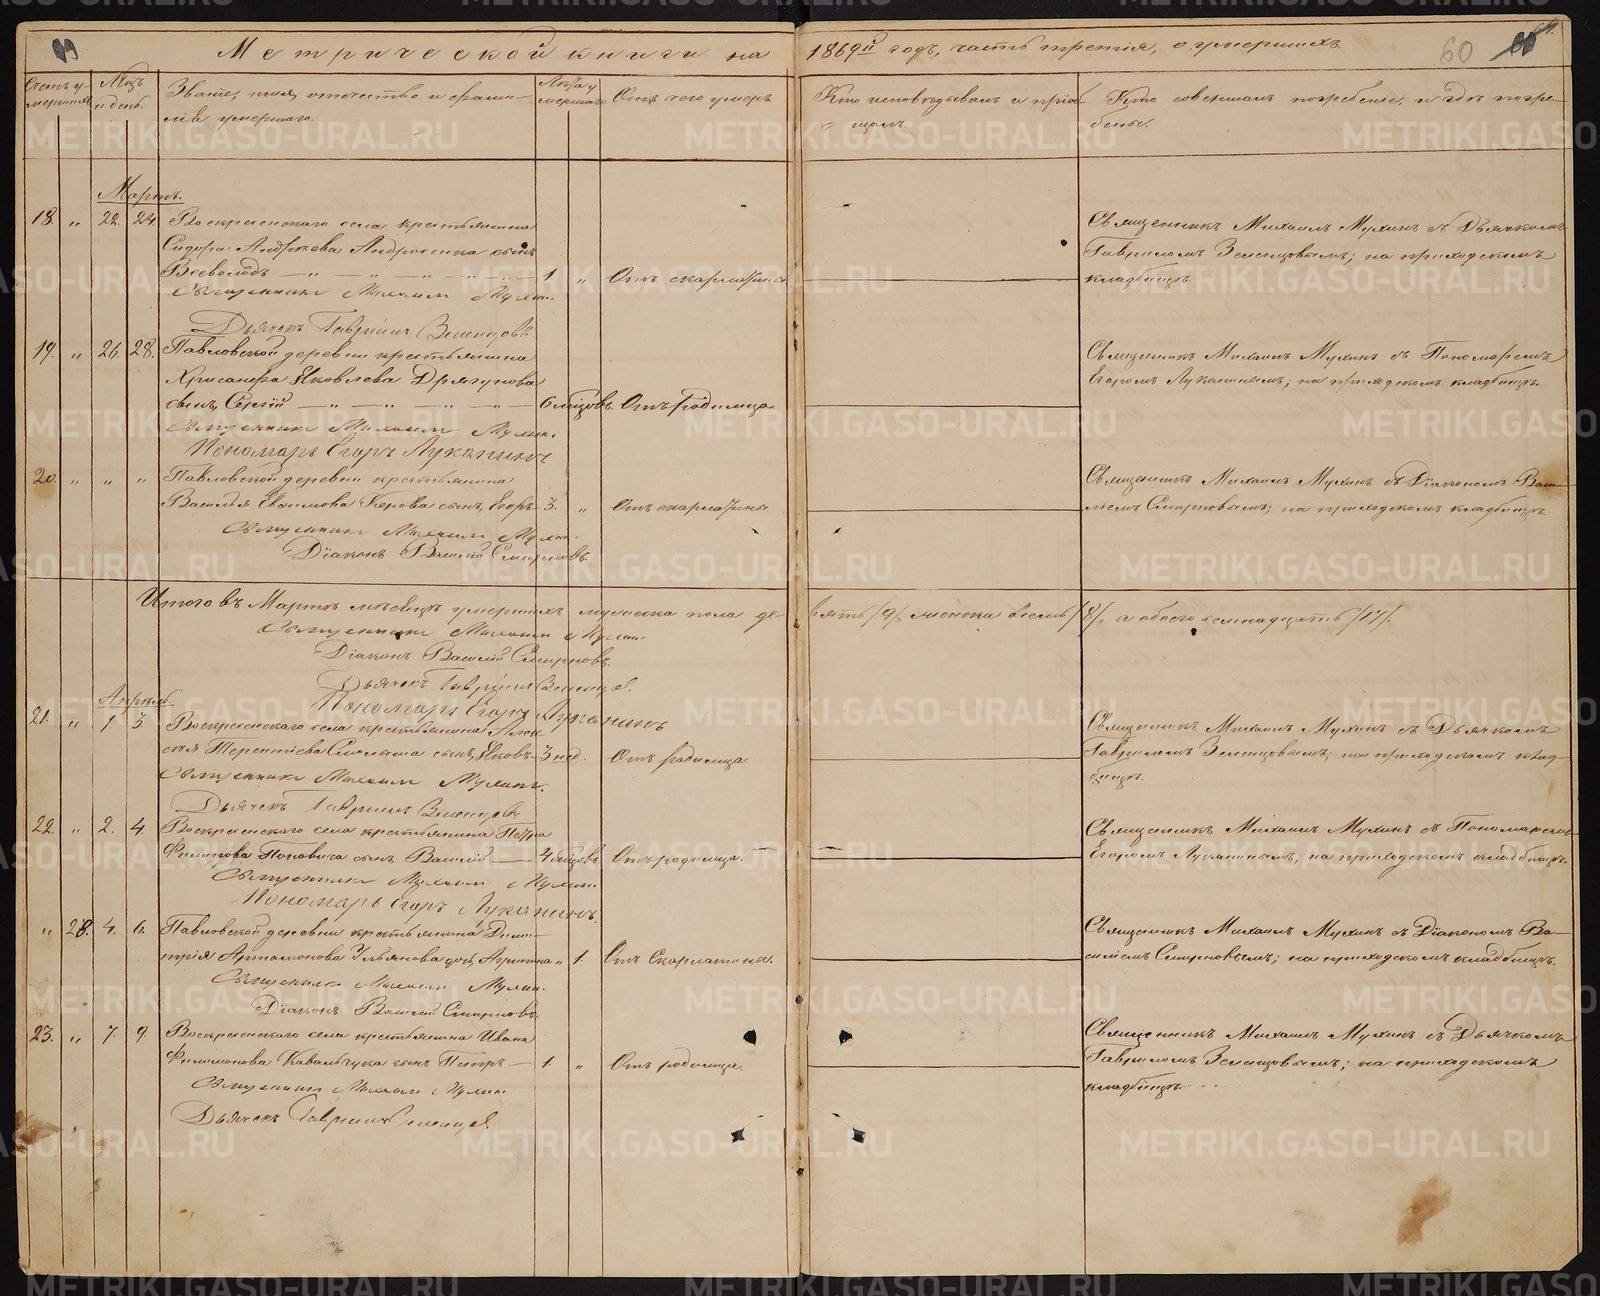 99
Метрической книги на 1869й годъ, часть третія, о умершихъ.
60
Счетъ умершихъ
Мѣсяцъ и день.
Званіе, имя, отчество и фамилія умершаго.
Лѣта умершаго
Отъ чего умеръ
Кто исповѣдывалъ и пріобщалъ.
Кто совершалъ погребеніе, и гдѣ погребены.
Мартъ.
18. " 22. 24. Воскресенскаго села крестьянина
Сидора Андреева Андросенка сынъ
Всеволодъ — " — " — " — " — 1 " Отъ скарлатины
Священникъ Михаилъ Мухинъ.
Дьячекъ Гавріилъ Зеленцовъ
Священникъ Михаилъ Мухинъ съ Дьячкомъ
Гавриломъ Зеленцовымъ; на приходскомъ
кладбищѣ.
19. " 26. 28. Павловской деревни крестьянина
Хрисанфа Яковлева Дрягунова
сынъ, Сергій — " — " — " — " — 6 мѣсцовъ Отъ родимца.
Священникъ Михаилъ Мухинъ.
Пономарь Егоръ Луканинъ
Священникъ Михаилъ Мухинъ съ Пономаремъ
Егоромъ Луканинымъ; на приходскомъ кладбищѣ.
20. " " " Павловской деревни крестьянина
Василья Евдимова сынъ, Егоръ — 3. " Отъ скарлатины
Священникъ Михаилъ Мухин.
Діаконъ Василій Смирновъ.
Священникъ Михаилъ Мухинъ съ Діакономъ Васи-
ліемъ Смирновымъ; на приходскомъ кладбищѣ.
Итого въ Мартѣ мѣсяцѣ умершихъ мужеска пола де-
вять /9/ женска восемь /8/, а обоего семнадцать /17/.
Священникъ Михаилъ Мухин.
Діаконъ Василій Смирновъ.
Дьячекъ Гавріилъ Зеленцов.
Пономарь Егоръ Луканинъ
Апрѣль.
21. " 1. 3 Воскресенскаго села крестьянина Алек-
сѣя Терентіева сынъ, Яковъ — 3 нед. Отъ родимца
Священникъ Михаилъ Мухинъ.
Дьячекъ Гавріилъ Зеленцовъ
Священникъ Михаилъ Мухинъ съ Дьячкомъ
Гавриломъ Зеленцовымъ; на приходскомъ клад-
бищѣ.
22. " 2. 4. Воскресенскаго села крестьянина Петра
Филипова Поповича сынъ Василій — 4 мѣсцовъ Отъ родимца.
Священникъ Михаилъ Мухин.
Пономарь Егоръ Луканинъ.
Священникъ Михаилъ Мухинъ съ Пономаремъ
Егоромъ Луканинымъ; на приходскомъ кладбищѣ.
" 28. 4. 6. Павловской деревни крестьянина Дими-
трія Артамонова Ульянова доч. " 1. Отъ Скарлатины.
Священникъ Михаилъ Мухин.
Діаконъ Василій Смирновъ.
Священникъ Михаилъ Мухинъ съ Діакономъ Ва-
силіемъ Смирновымъ; на приходскомъ кладбищѣ.
23. " 7. 9. Воскресенскаго села крестьянина Ивана
Филимонова Ковальчука сынъ Петръ — 1. " Отъ родимца.
Священникъ Михаилъ Мухин
Дьячекъ Гавріилъ Зеленцов.
Священникъ Михаилъ Мухинъ съ Дьячкомъ
Гавриломъ Зеленцовымъ; на приходскомъ
кладбищѣ.
METRIKI.GASO-URAL.RU